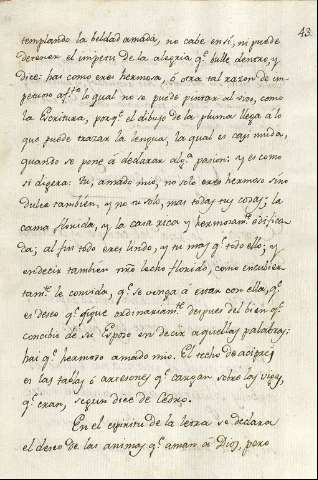 43.
templando la beldad amada, no cabe en sí; ni puede
detener el impetu de la alegria q.e bulle dentro, y
dice: hai como eres hermosa, ó otra tal razon de im-
petuoso af.to lo qual no se puede pintar al vivo, como
la Escritura, porq.e el dibujo de la pluma llega á lo
que puede trazar la lengua, la qual es casi muda,
quando se pone á declarar alg.a pasion: y es como
si digera: tu, amado mio, no solo eres hermoso sino
dulce tambien, y no tu solo, mas todas tus cosas; la
cama florida, y la casa rica y hermosam.te edifica-
da; al fin todo eres lindo, y tu mas q.e todo ello; y
en decir tambien nro lecho florido, como encubier-
tam.te le convida, q.e se venga á estar con ella, q.e
es deseo q.e sigue ordinariam.te despues del bien q.e
concibe de su Esposo en decir aquellas palabras:
hai q.e hermoso amado mio. El techo de
es las tablas ó artesones q.e cargan sobre las vigas,
q.e eran, segun dice de Cedro.
En el espiritu de la letra se declara
el deseo de las animas q.e aman á Dios, pero